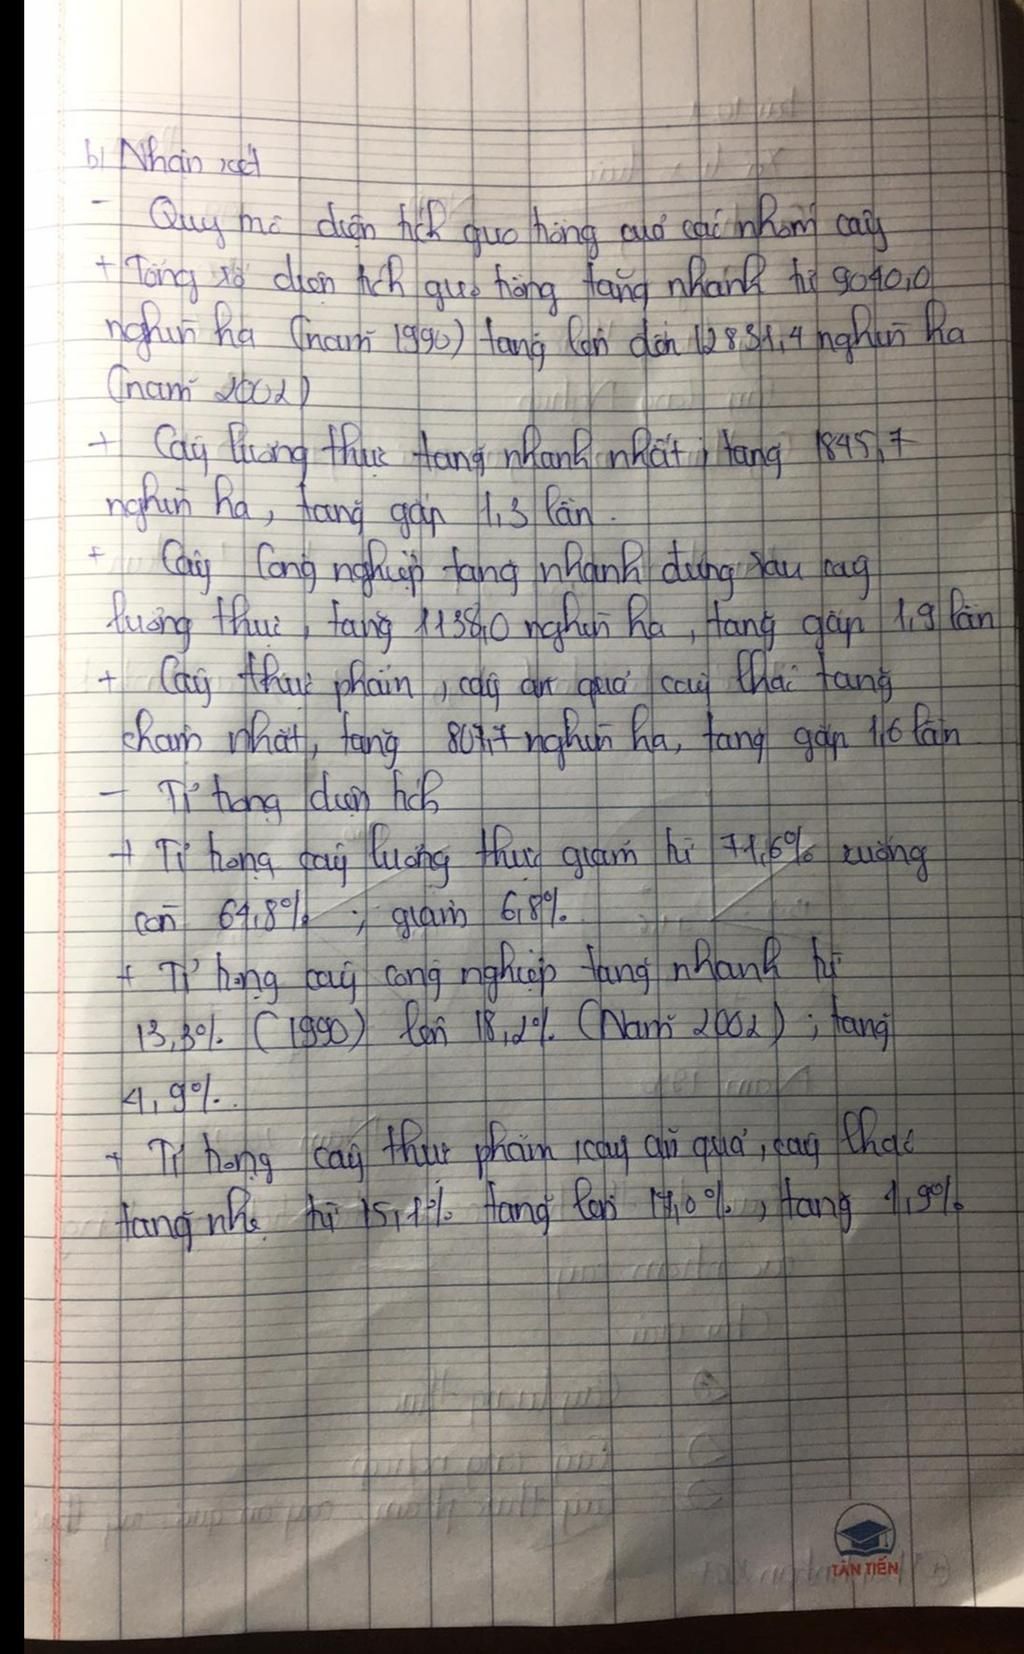 b) Nhận xét
- Quy mô diện tích gieo trồng của các nhóm cây
+ Tổng số diện tích gieo trồng tăng nhanh từ 9040,0
nghìn ha (năm 1990) tăng lên đến 12831,4 nghìn ha
(năm 2002)
+ Cây lương thực tăng nhanh nhất, tăng 1845,7
nghìn ha, tăng gấp 1,3 lần.
+ Cây công nghiệp tăng nhanh đứng sau cây
lương thực, tăng 1138,0 nghìn ha, tăng gấp 1,9 lần
+ Cây thực phẩm, cây ăn quả cây khác tăng
chậm nhất, tăng 807,7 nghìn ha, tăng gấp 1,6 lần
- Tỉ trọng diện tích
+ Tỉ trọng cây lương thực giảm từ 71,6% xuống
còn 64,8%; giảm 6,8%.
+ Tỉ trọng cây công nghiệp tăng nhanh từ
13,3% (1990) lên 18,2% (Năm 2002); tăng
4,9%.
+ Tỉ trọng cây thực phẩm, cây ăn quả, cây khác
tăng nhẹ từ 15,1% tăng lên 17,0%, tăng 1,9%
TÂN TIẾN